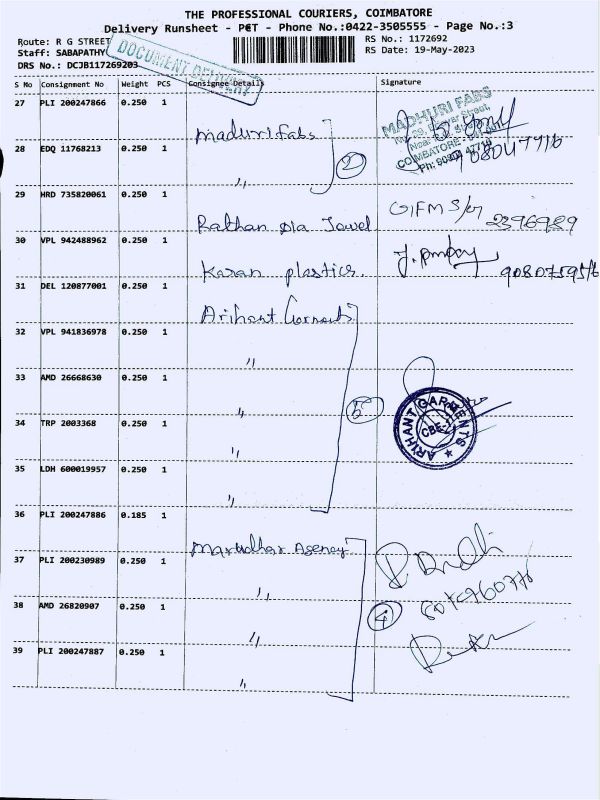 THE PROFESSIONAL COURIERS, COIMBATORE
Delivery Runsheet - P€T - Phone No.:0422-3505555 - Page No.:3
Route: R G STREET
RS No.: 1172692
Staff: SABAPATHY
RS Date: 19-May-2023
DRS No.: DCJB117269203
DOCUMENT DELIVERY
S No Consignment No Weight PCS Consignee Details Signature
27 PLI 200247866 0.250 1
Maduri Fabs
MADHURI FABS
COIMBATORE
28 EDQ 11768213 0.250 1
2
〃
29 HRD 735820061 0.250 1
Rathan Dia Jowel
2396989
30 VPL 942488962 0.250 1
Karan plastics
31 DEL 120877001 0.250 1
Arihant Garments
32 VPL 941836978 0.250 1
〃
33 AMD 26668630 0.250 1
〃
5
ARIHANT GARMENTS
CBE-1
34 TRP 2003368 0.250 1
〃
35 LDH 600019957 0.250 1
〃
36 PLI 200247886 0.185 1
Marudhar Agency
37 PLI 200230989 0.250 1
〃
38 AMD 26820907 0.250 1
4
〃
39 PLI 200247887 0.250 1
〃